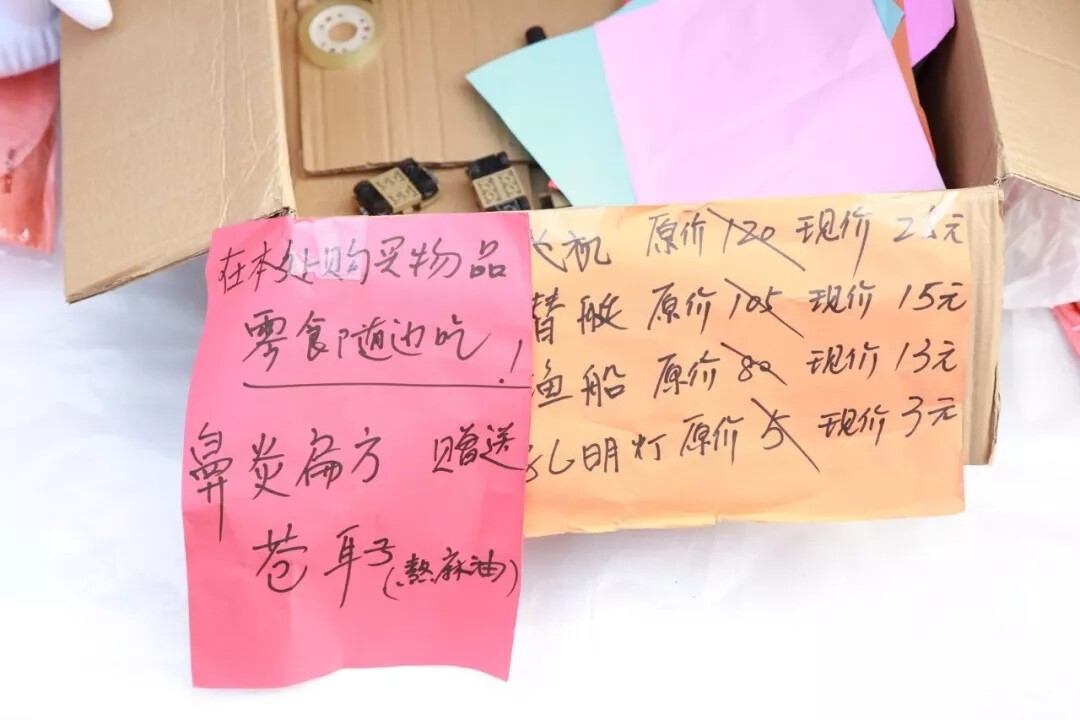 在本处购买物品
零食随边吃！
鼻炎扁方 赠送
苍耳子(熬麻油)
机 原价120 现价 25元
艇 原价105 现价 15元
渔船 原价80 现价 13元
孔明灯 原价5 现价3元